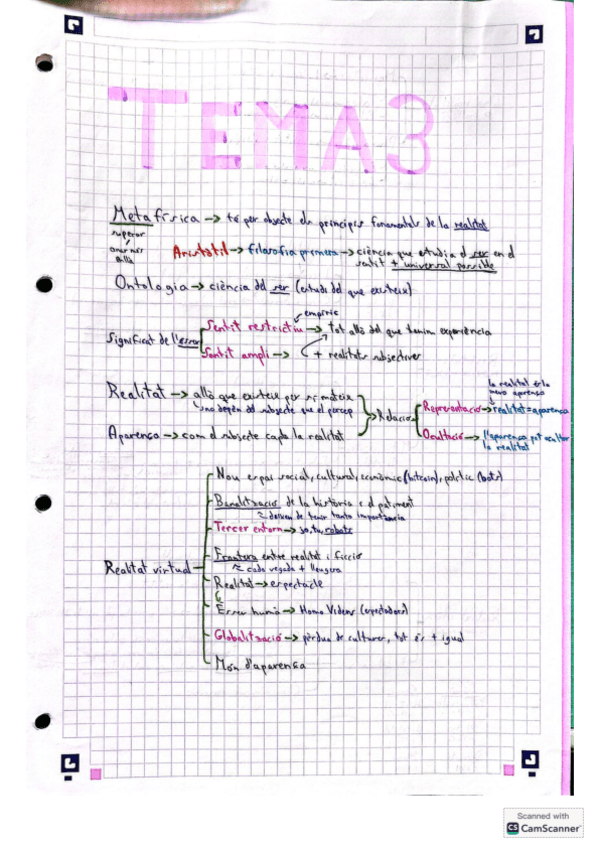 TEMA 3
Metafísica → té per objecte els principis fonamentals de la realitat
superar
anar més
allà
Aristòtil → filosofia primera → ciència que estudia el ser en el
sentit + universal possible
Ontologia → ciència del ser (estudi del que existeix)
empíric
Significat de l'
Sentit restrictiu → tot allò del que tenim experiència
Sentit ampli → + realitats subjectives
la realitat és la
meva aparença
Realitat → allò que existeix per si mateix
no depèn del subjecte que el percep
Relació
Representació → realitat = aparença
Aparença → com el subjecte capta la realitat
Ocultació → l'aparença pot ocultar
la realitat
Realitat virtual
Nou espai social, cultural, econòmic (bitcoin), polític (bots)
Banalització de la història i el patiment
≈ deixen de tenir tanta importància
Tercer entorn → jo, tu, robots
Frontera entre realitat i ficció
≈ cada vegada + lleugera
Realitat → espectacle
Ésser humà → Homo Videns (espectadors)
Globalització → pèrdua de cultures, tot és + igual
Món d'aparença
Scanned with
CS CamScanner